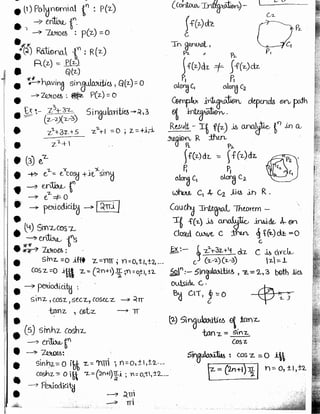 (1) Polynomial fⁿ : P(z)
→ entire fⁿ.
→ zeroes : p(z) = 0
(2) Rational fⁿ : R(z)
R(z) = P(z)/Q(z)
→ having singularities, Q(z) = 0
→ Zeroes : P(z) = 0
Ex:- z³+3z / (z-2)(z-3) Singularities → 2, 3
z²+3z+5 / z²+1 z²+1 = 0 ; z = ±i
(3) e^z
→ e^z = e^x cos y + i e^x sin y
→ entire fⁿ
→ e^z ≠ 0
→ periodicity → 2πi
(4) Sin z, cos z
→ entire fⁿs
→ zeroes :
sin z = 0 iff z = nπ ; n = 0, ±1, ±2, ...
cos z = 0 iff z = (2n+1)π/2 ; n = 0, ±1, ±2
→ periodicity :
sin z, cos z, sec z, cosec z → 2π
tan z, cot z → π
(5) sinh z, cosh z
→ entire fⁿ
→ Zeroes :
sinh z = 0 iff z = nπi ; n = 0, ±1, ±2, ...
cosh z = 0 iff z = (2n+1)π/2 i ; n = 0, ±1, ±2...
→ Periodicity
→ 2πi
→ πi
(Contour Integration)
∫f(z)dz
In general,
∫f(z)dz ≠ ∫f(z)dz
along C₁ along C₂
Complex integration depends on path
of integration.
Result - If f(z) is analytic fⁿ in a
region R then
∫f(z)dz = ∫f(z)dz
along C₁ along C₂
where C₁ & C₂ lies in R.
Cauchy Integral Theorem -
If f(z) is analytic inside & on
closed curve C then ∮f(z)dz = 0
Ex:- ∮ z²+3z+4 / (z-2)(z-3) dz C is circle
|z| = 1
Solⁿ:- Singularities, z = 2, 3 both lies
outside C.
By CIT, ∮ = 0
(2) Singularities of tan z
tan z = sin z / cos z
Singularities : cos z = 0 iff
z = (2n+1)π/2 n = 0, ±1, ±2